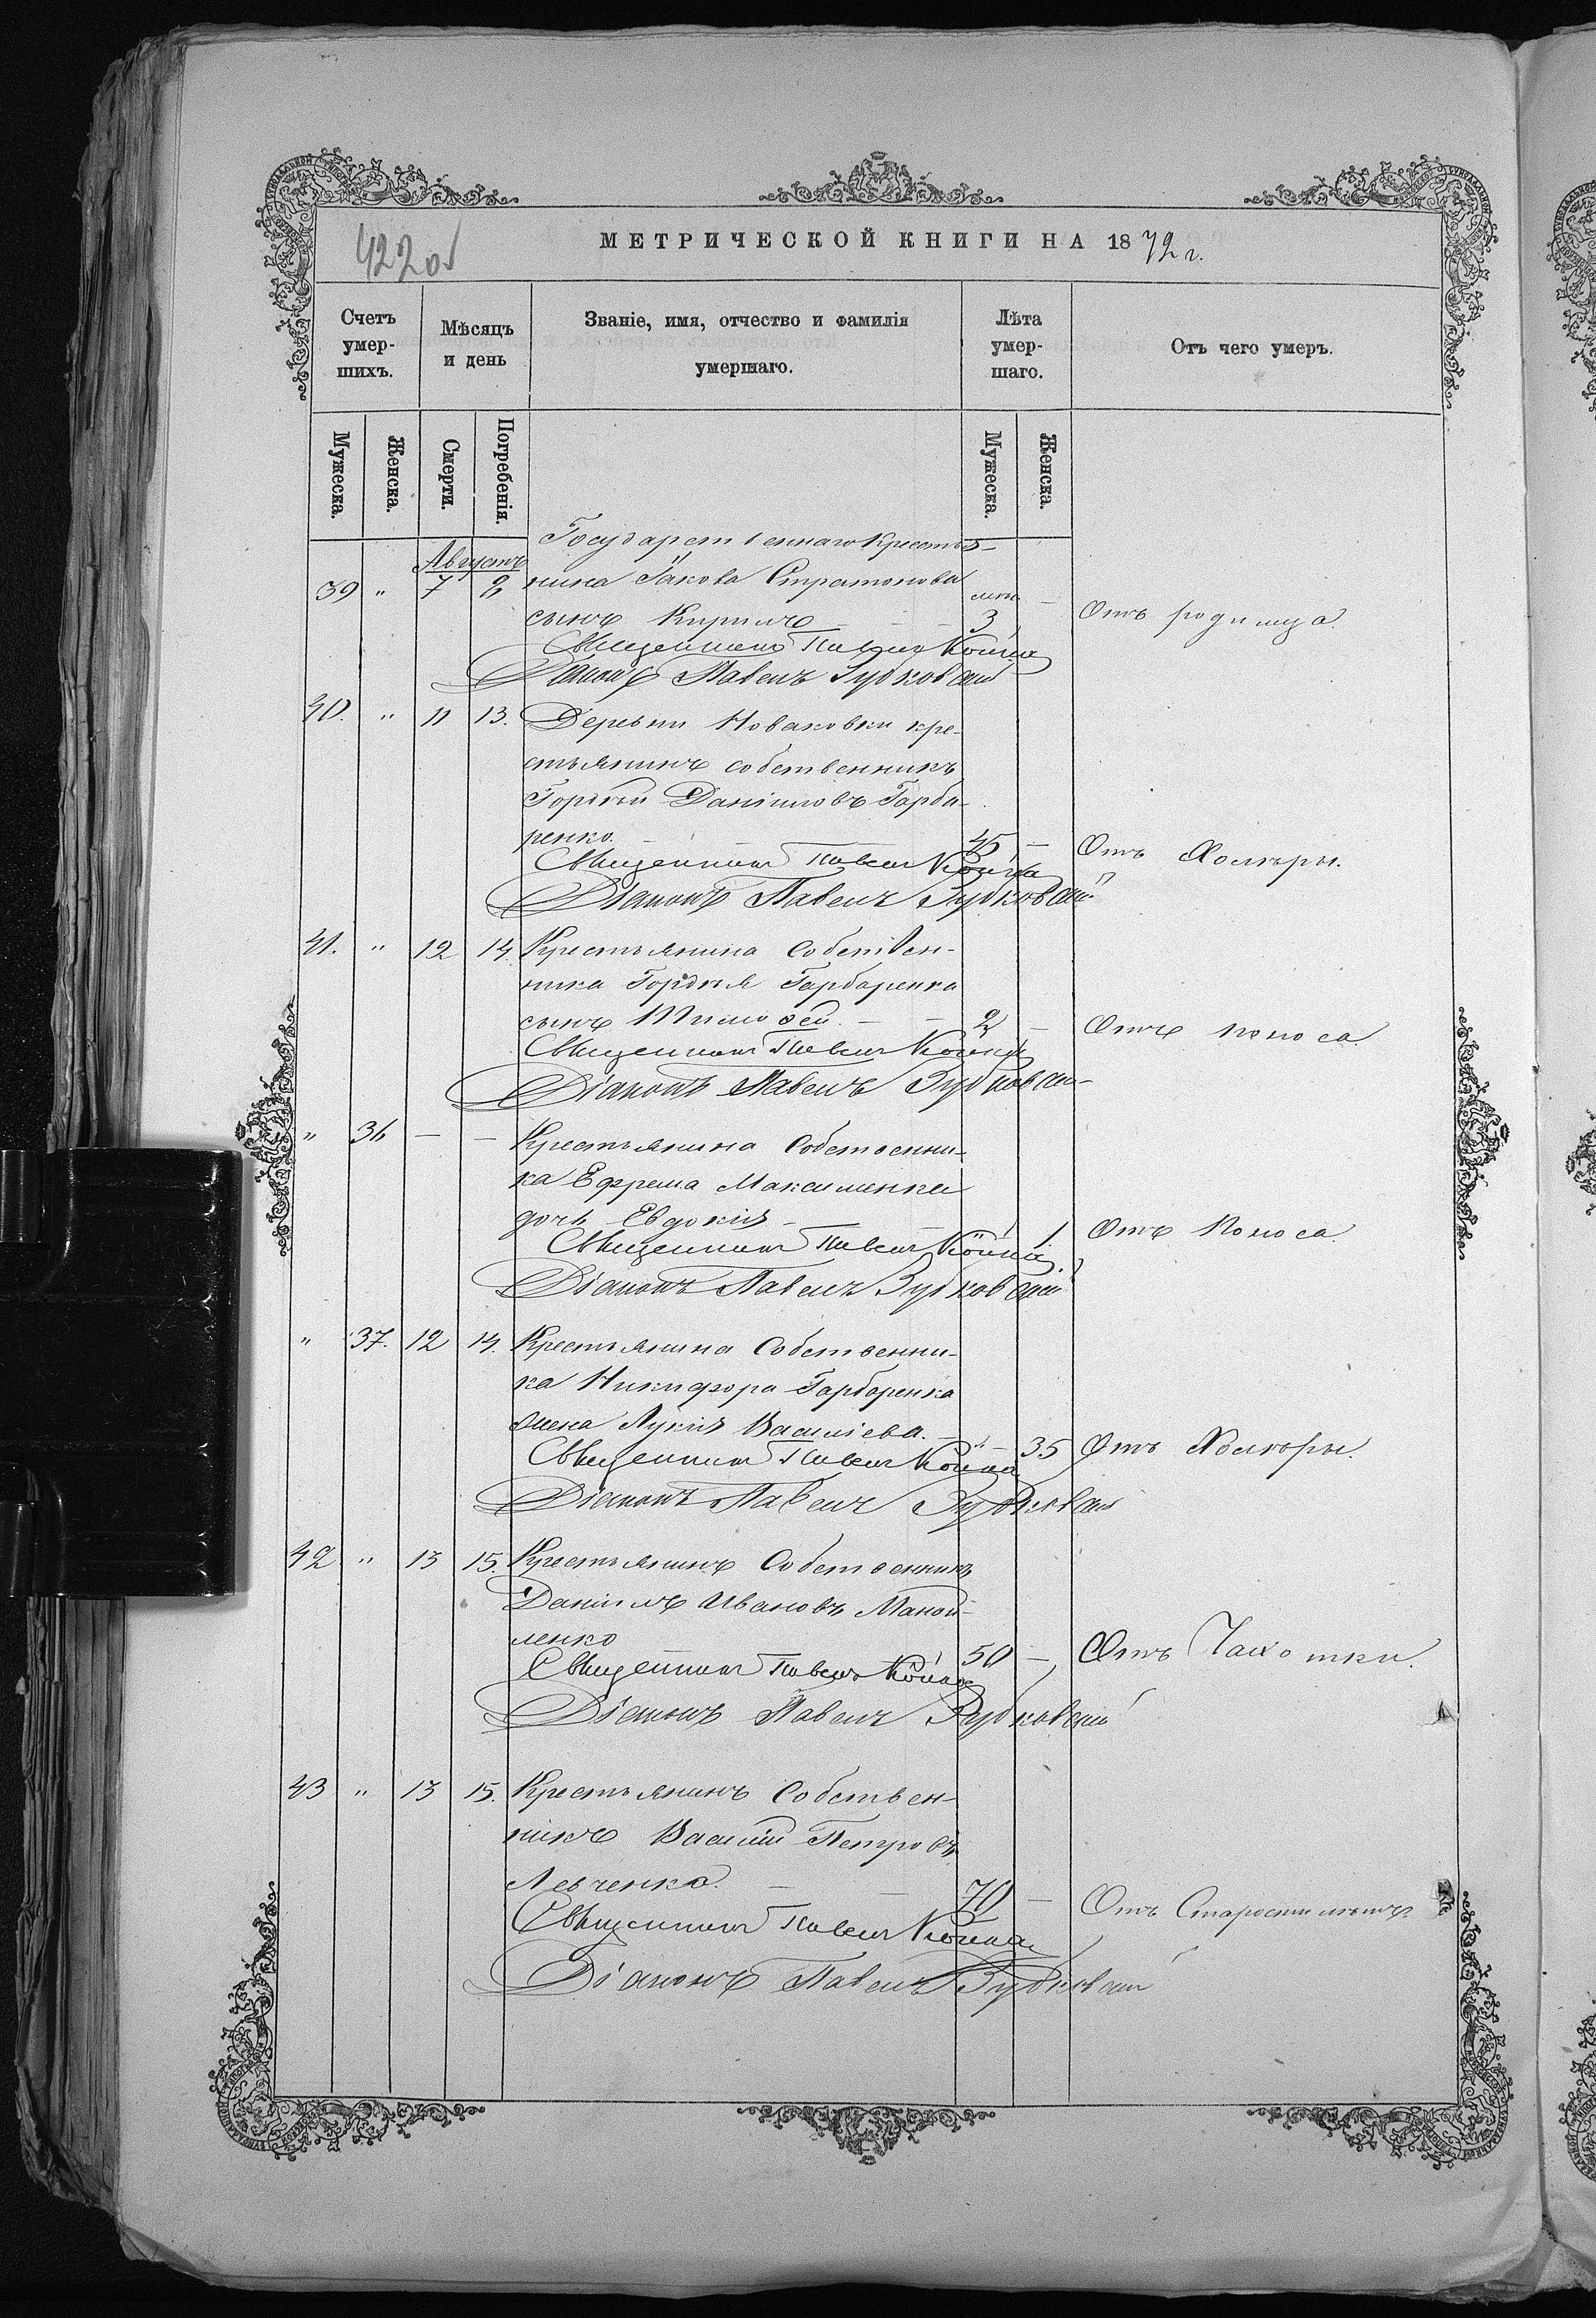 422об
МЕТРИЧЕСКОЙ КНИГИ НА 1872 г.
Счетъ умер-шихъ.
Мѣсяцъ и день
Званіе, имя, отчество и фамилія умершаго.
Лѣта умер-шаго.
Отъ чего умеръ.
Мужеска.
Женска.
Смерти.
Погребенія.
Мужеска.
Женска.
Августъ
Государственнаго Крестья-
39 " 7 8 нина Іакова Стратонова мѣс. -
сынъ Кирилъ - - - 3 Отъ родимца.
Священникъ Павелъ
Діаконъ Павелъ Зубковскій
40. " 11 13. Деревни Новаковки кре-
стьянинъ собственникъ
Гордѣй Даніиловъ Гарба-
ренко. - - - 45 - Отъ Холеры.
Священникъ Павелъ
Діаконъ Павелъ Зубковскій
41. " 12 14. Крестьянина Собствен-
ника Гордѣя Гарбаренка
сынъ Тимоѳей. - - 2 - Отъ поноса.
Священникъ Павелъ
Діаконъ Павелъ Зубковскій
" 36 - - Крестьянина Собственни-
ка Ефрема Максименка
дочь Евдокія - - 1 Отъ Поноса.
Священникъ Павелъ
Діаконъ Павелъ Зубковскій
" 37. 12 14. Крестьянина Собственни-
ка Никифора Гарбаренка
жена Лукія Василіева. - " - 35 Отъ Холеры.
Священникъ Павелъ
Діаконъ Павелъ Зубковскій
42 " 13 15. Крестьянинъ Собственникъ
Даніилъ Ивановъ Маной-
ленко 50 - Отъ Чахотки.
Священникъ Павелъ
Діаконъ Павелъ Зубковскій
43 " 13 15. Крестьянинъ Собствен-
никъ Василій Петровъ
Левченко. - - 70 - Отъ Старости лѣтъ.
Священникъ Павелъ
Діаконъ Павелъ Зубковскій